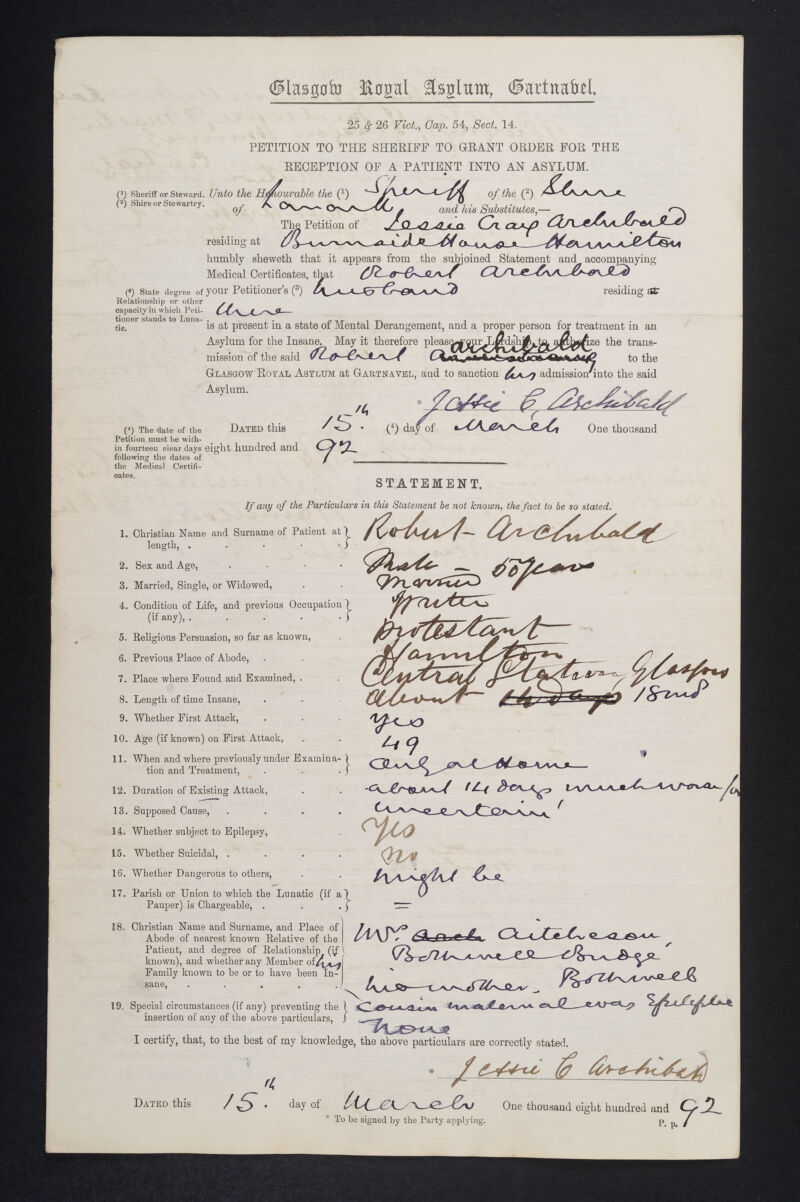 Glasgow Royal Asylum, Gartnavel.
25 & 26 Vict., Cap. 54, Sect. 14.
PETITION TO THE SHERIFF TO GRANT ORDER FOR THE
RECEPTION OF A PATIENT INTO AN ASYLUM.
(1) Sheriff or Steward.
(2) Shire or Stewartry.
Unto the Honourable the (1) Sheriff of the (2) Shire
of Lanark and his Substitutes,—
The Petition of Jessie Craig Archibald
residing at Burnside House Hamilton
humbly sheweth that it appears from the subjoined Statement and accompanying
Medical Certificates, that Robert Archibald
(3) State degree of Relationship or other capacity in which Petitioner stands to Lunatic.
your Petitioner's (3) husband residing at
there
is at present in a state of Mental Derangement, and a proper person for treatment in an
Asylum for the Insane. May it therefore please your Lordship to authorize the trans-
mission of the said Robert Archibald to the
GLASGOW ROYAL ASYLUM AT GARTNAVEL, and to sanction his admission into the said
Asylum.
* Jessie C. Archibald
(4) The date of the Petition must be within fourteen clear days following the dates of the Medical Certificates.
DATED this 15th. (4) day of March One thousand
eight hundred and 92
STATEMENT.
If any of the Particulars in this Statement be not known, the fact to be so stated.
1. Christian Name and Surname of Patient at length, . Robert Archibald
2. Sex and Age, Male – 50 years
3. Married, Single, or Widowed, Married
4. Condition of Life, and previous Occupation (if any), . Writer
5. Religious Persuasion, so far as known, Protestant
6. Previous Place of Abode, Hamilton
7. Place where Found and Examined, . Central Station, Glasgow
8. Length of time Insane, about 14 days 18 mos
9. Whether First Attack, yes
10. Age (if known) on First Attack, 49
11. When and where previously under Examination and Treatment, only at Home
12. Duration of Existing Attack, about 14 days much worse for
13. Supposed Cause, uncertain
14. Whether subject to Epilepsy, Yes
15. Whether Suicidal, . No
16. Whether Dangerous to others, might be
17. Parish or Union to which the Lunatic (if a Pauper) is Chargeable, . =
18. Christian Name and Surname, and Place of Abode of nearest known Relative of the Patient, and degree of Relationship (if known), and whether any Member of his Family known to be or to have been Insane, Mrs. Arch Aitcheson,
Bothwell Bridge,
his mother. Bothwell
cousin maternal was Epileptic
19. Special circumstances (if any) preventing the insertion of any of the above particulars, None
I certify, that, to the best of my knowledge, the above particulars are correctly stated.
* Jessie C Archibald
DATED this 15th. day of March One thousand eight hundred and 92
* To be signed by the Party applying.
P. p.